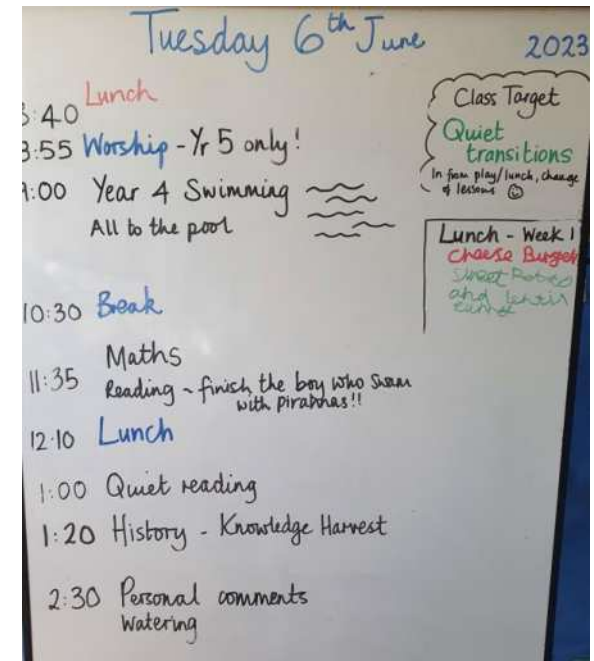 Tuesday 6th June 2023
Lunch
8:40
8:55 Worship - Yr 5 only!
9:00 Year 4 Swimming
All to the pool
10:30 Break
Maths
11:35
Reading ~ finish the boy who swam
with piraphas!!
12.10 Lunch
1:00 Quiet reading
1:20 History - Knowledge Harvest
2:30 Personal comments
Watering
Class Target
Quiet
transitions
In from play/lunch, change
of lessons
Lunch - Week 1
Cheese Burger
Sweet Potato
and lentil